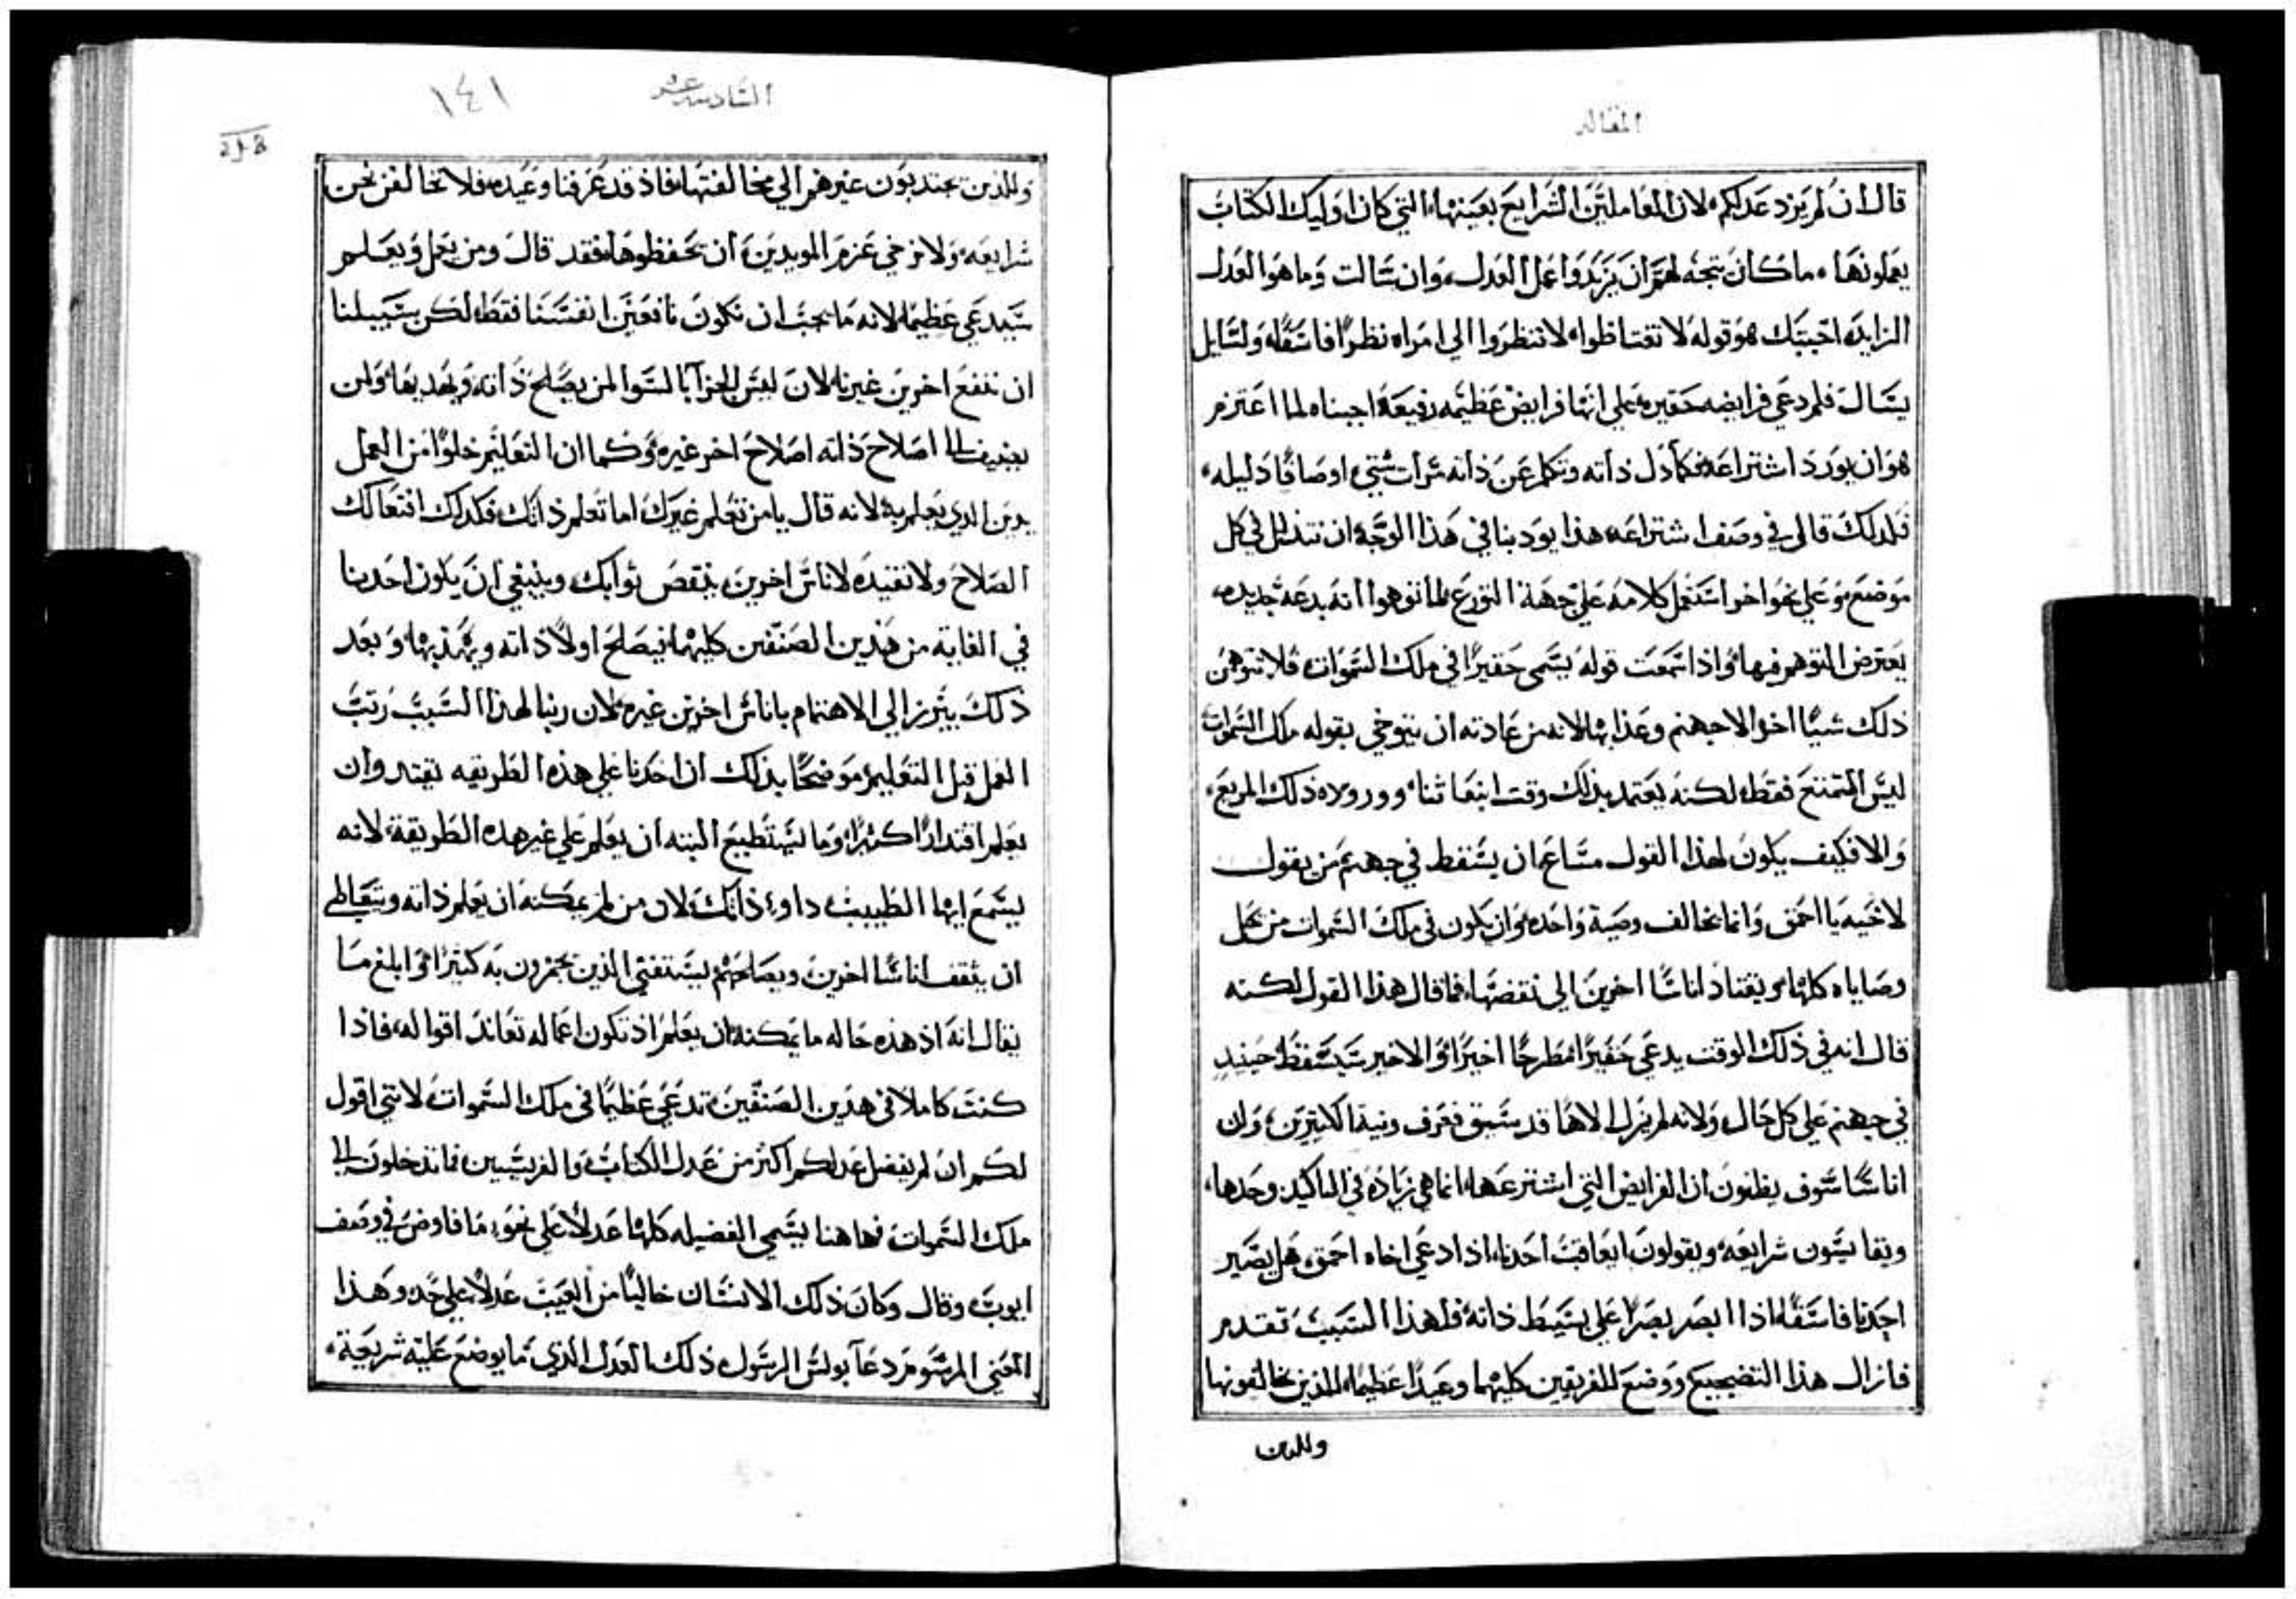 المقاله
قال ان لم يزد عدلكم، لان لمعاملتين الشرايع بعينها، التي كان اوليك الكتاب
يعملونها، ما كان يتجه لهم ان يزيدوا عمل العدل، وان سالت وما هو العدل
الزايد، اجبتك هو قوله لا تغتاظوا، لا تنظروا الي امراه نظرًا فاسقًا، ولسايل
يسال فلم دعي فرايضه حقيره، علي انها فرايض عظيمه رفيعة، اجبناه لما اعتزم
هو ان يورد اشتراعه، فكما ذلل ذاته وتكلم عن ذاته مرات شتي، اوصافًا ذليله،
فلدلك قال في وصف اشتراعه، هذا يودبنا في هذا الوجه، ان نتذلل في كل
موضع، وعلي نحو اخر استعمل كلامه علي جهة التورع، لما توهوا انه بدعة جديده،
يعترض المتوهم فيها، واذا سمعت قوله يسمي حقيرًا في ملك السموات، فلا تتوهمن
ذلك شيًا اخر الا جهنم وعذابها، لانه من عادته ان يتوخي بقوله ملك السموات
ليس التمتع فقط، لكنه يعتمد بذلك وقت انبعاثنا، ووروده ذلك المريع،
والا فكيف يكون لهذا القول مساغ، ان يسقط في جهنم من يقول
لاخيه يا احمق، وانما يخالف وصية واحده، وان يكون في ملك السموات من يحل
وصاياه كلها، ويقتاد اناسًا اخرين الي نقضها، فما قال هذا القول لكنه
قال انه في ذلك الوقت يدعي حقيرًا، مطرحًا اخيرًا، والاخير سيسقط حينيد
في جهنم علي كل حال، ولانه لم يزل الاهًا قد سبق فعرف ونية الكثيرين، وان
اناسًا سوف يظنون ان الفرايض التي اشترعها، انما هي زيادة في التاكيد وحدها،
ويقايسون شرايعه، ويقولون ايعاقب احدنا، اذا دعي اخاه احمق، هل يصير
احدنا فاسقًا، اذا ابصر بصرًا علي بسيط ذاته، فلهذا السبب تقدم
فازال هذا التضجيع، ووضع للفريقين كليهما وعيدًا عظيمًا، للذين يخالفونها
وللدين
السادسه عشر
١٤١
وللذين يجتدبون غيرهم الي مخالفتها، فاذ قد عرفنا وعيده، فلا نخالفن نحن
شرايعه، ولا نرخي عزم المويدين، ان تحفظوها، فقد قال ومن يعمل ويعلم
سيدعي عظيمًا، لانه ما يجب ان نكون نافعين انفسنا فقط، لكن سبيلنا
ان ننفع اخرين غيرنا، لان ليس الجزا بالسوا لمن يصلح ذاته، ويهديها، ولمن
يضيف الي اصلاح ذاته اصلاح اخر غيره، وكما ان التعليم خلوًا من العمل
يدين الدي يعلم به، لانه قال يا من تعلم غيرك اما تعلم ذاتك، فكدلك افتعالك
الصلاح ولا تفيده لاناس اخرين، ينقص ثوابك، وينبغي ان يكون احدنا
في الغاية من هذين الصنفين كليهما، فيصلح اولًا ذاته ويهذبها، وبعد
ذلك يبرز الي الاهتمام باناس اخرين غيره، لان ربنا لهذا السبب رتب
العمل قبل التعليم، موضحًا بذلك ان احدنا علي هذه الطريقه يقتدر وان
يعلم اقتدارًا كثيرًا، وما يستطيع البته ان يعلم علي غير هذه الطريقة، لانه
يسمع ايها الطبيب داوي ذاتك، لان من لم يمكنه ان يعلم ذاته ويتعاطي
ان يثقف اناسًا اخرين، ويصلحهم يستقني الذين يجهزون به كثيرًا، وابلغ ما
يقال انه اذ هذه حاله ما يمكنه ان يعلم، اذ تكون اعماله تعاند اقواله، فاذا
كنت كاملًا في هذين الصنفين، تدعي عظيمًا في ملك السموات، لانني اقول
لكم ان لم يفضل عدلكم اكثر من عدل الكتاب والفريسيين، فما تدخلون الي
ملك السموات، فها هنا يسمي الفضيله كلها عدلًا، علي نحو ما فاوض في وصف
ايوب، وقال وكان ذلك الانسان خاليًا من العيب عدلًا، علي حد وهذا
المعني المرسوم دعا بولس الرسول، ذلك العدل الذي ما يوضع عليه شريعة،